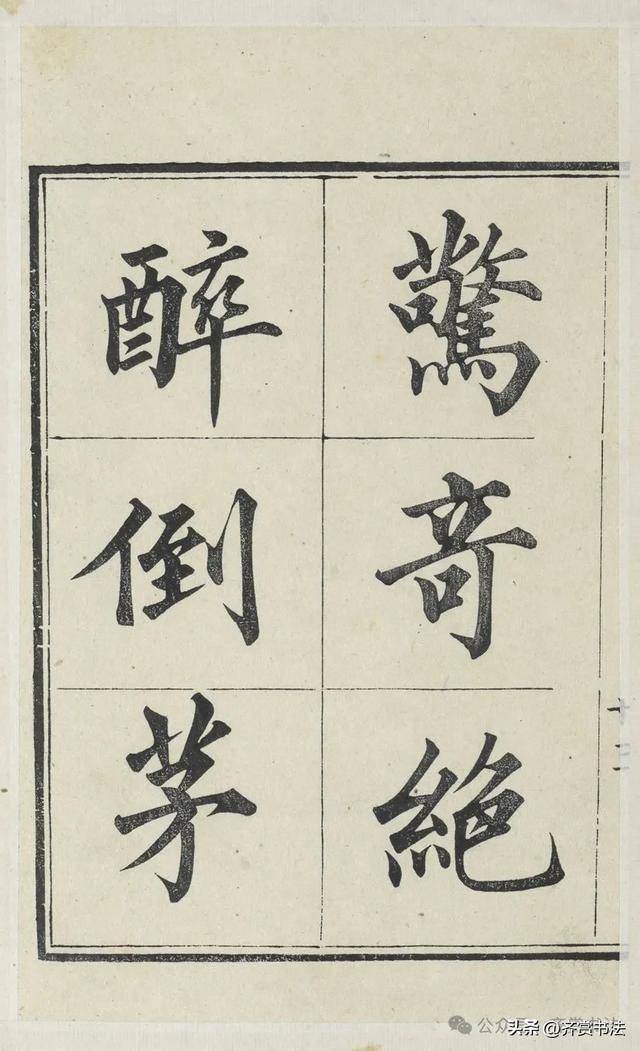 驚奇絶
醉倒茅
十三
头条 @齐赏书法